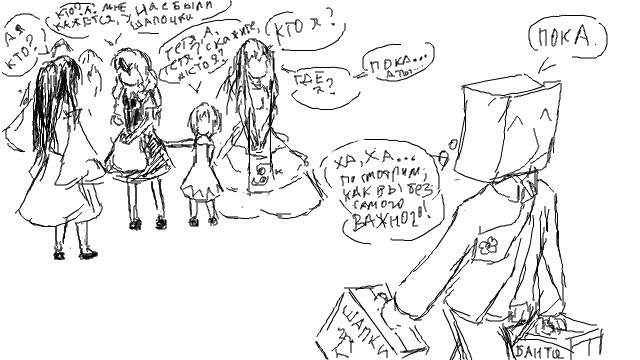 А Я
КТО?
КТО? А. МНЕ
КАЖЕТСЯ, У НАС БЫЛИ
ШАПОЧКИ
ТЕТЯ, А,
ТЕТЯ, СКАЖИТЕ,
Я КТО?
КТО Я?
ГДЕ
Я?
ПОКА...
ПОКА.
ХА, ХА...
ПОСМОТРИМ,
КАК ВЫ БЕЗ
САМОГО
ВАЖНОГО!
ШАПКИ
БАНТЫ